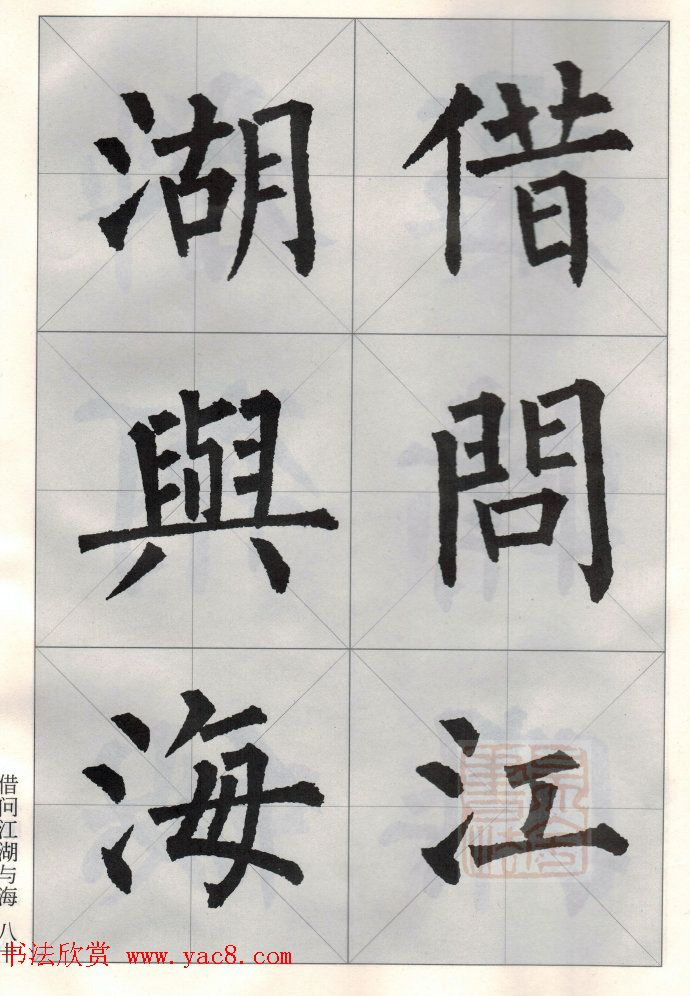 借問江
湖與海
借问江湖与海 八十
书法欣赏 www.yac8.com